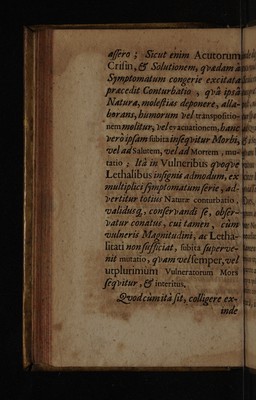 assero; Sicut enim Acutorum
Crisin, & Solutionem, qvædam a
Symptomatum congerie excitata
præcedit Conturbatio, qvâ ipsâ
Natura, molestias deponere, alla-
borans, humorum vel transpositio-
nem molitur, vel evacuationem, hanc
verò ipsam subita insequitur Morbi,
vel ad Salutem, vel ad Mortem, mu-
tatio; Ità in Vulneribus qvoqve
Lethalibus insignis admodum, ex
multiplici symptomatum serie, ad-
vertitur totius Naturæ conturbatio,
validusq, conservandi se, obser-
vatur conatus, cui tamen, cùm
vulneris Magnitudini, ac Letha-
litati non sufficiat, subita superve-
nit mutatio, qvam vel semper, vel
utplurimum Vulneratorum Mors
seqvitur, & interitus.
Qvod cùm ità sit, colligere ex-
inde